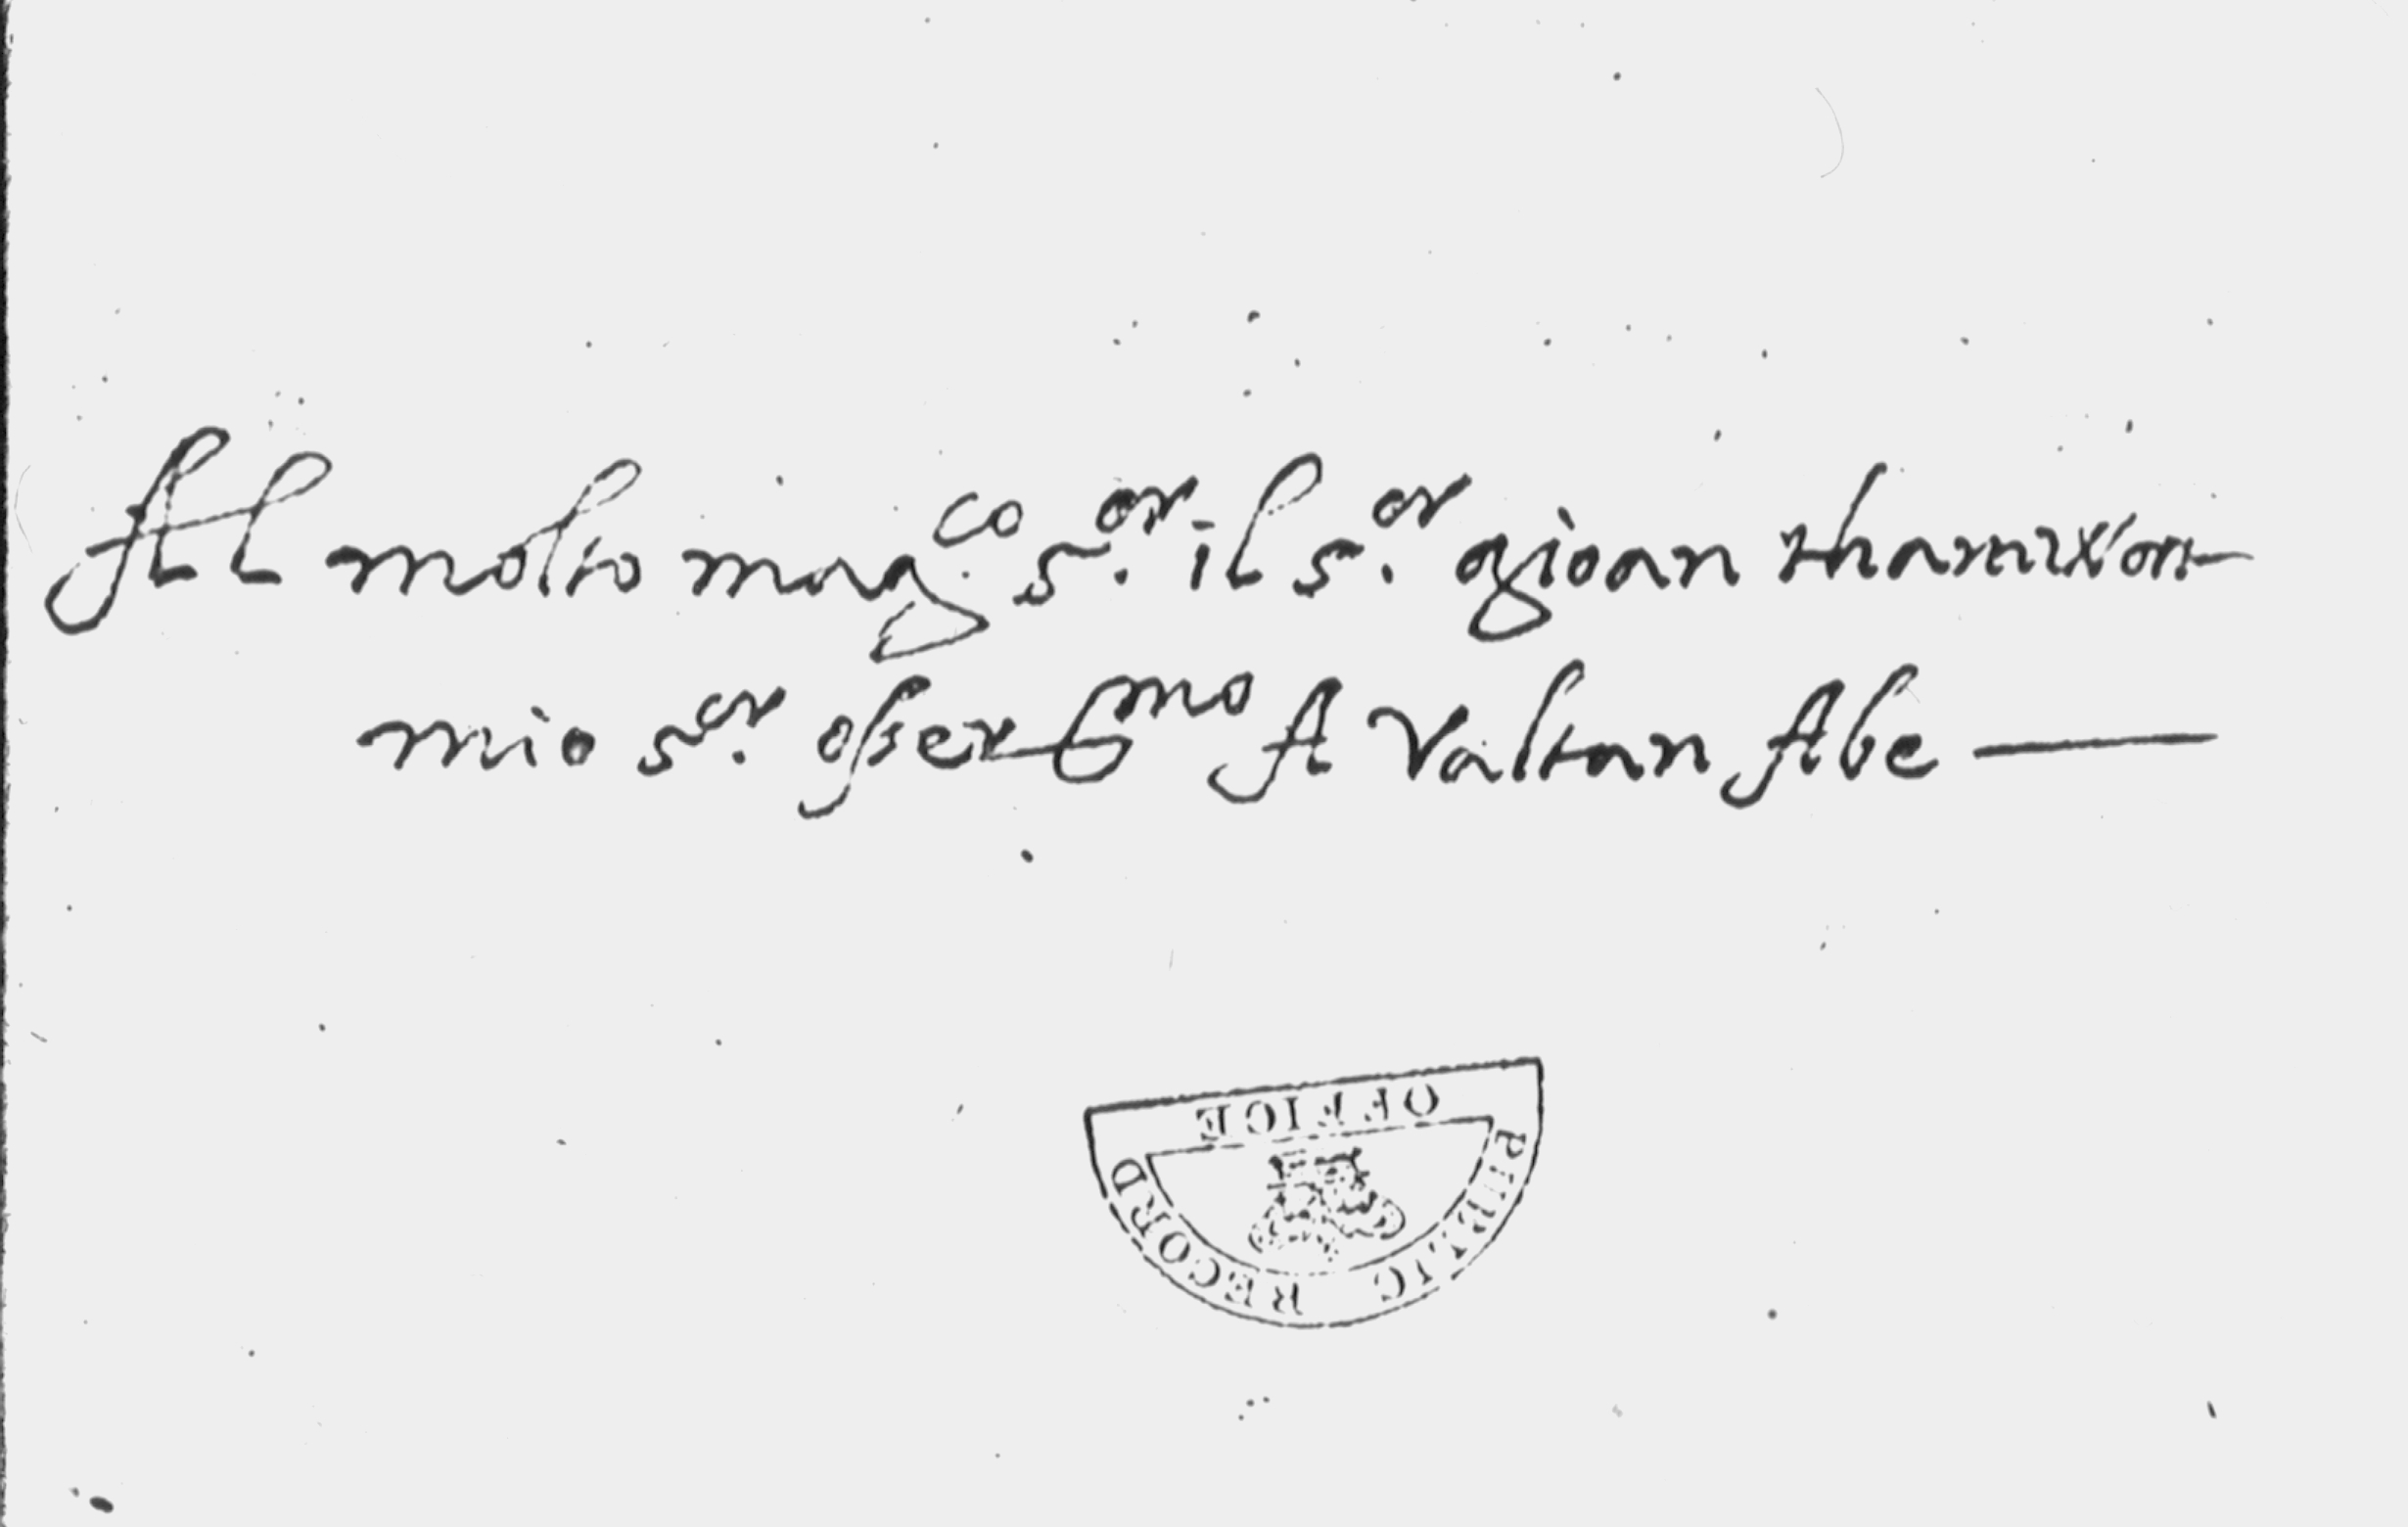 Al molto mag.co s.or il s.or gioan thamixon
mio s.or osser.mo A Valtan Abe
OFFICE
PUBLIC RECORD